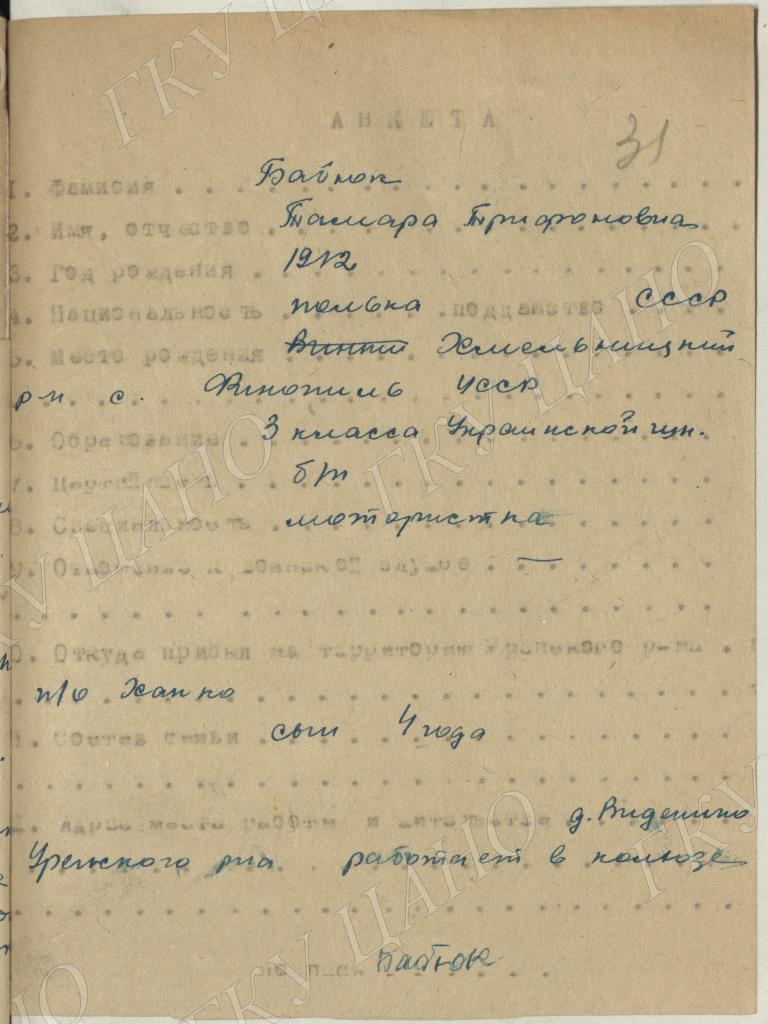 АНКЕТА
31
1. Фамилия . . . Бабнюк
2. Имя, отчество . Тамара Трифоновна
3. Год рождения . 1912
4. Национальность полька подданство СССР
5. Место рождения Хмельницкий
р-н. с. УССР
6. Образование . 3 класса Украинской
7. Партийность . . б/п
8. Специальность . мотористка
9. Отношение к воинской службе . —
10. Откуда прибыл на территорию Уренского р-на .
п/о Ханко
11. Состав семьи . сын 4 года
12. Адрес места работы и жительства д.
Уренского р-на работает в колхозе
Подпись Бабнюк
ГКУ ЦАНО